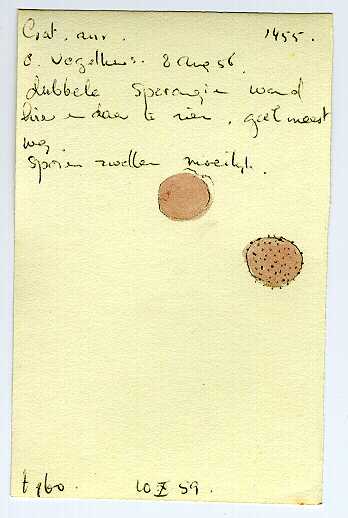 Crat. aur. 1455.
O. Vogelhuis. 8 aug 56.
dubbele sporangien wand
hier en daar te zien, gaat meest
weg.
Sporen zwellen moeilijk.
t 960. 10 X 59.